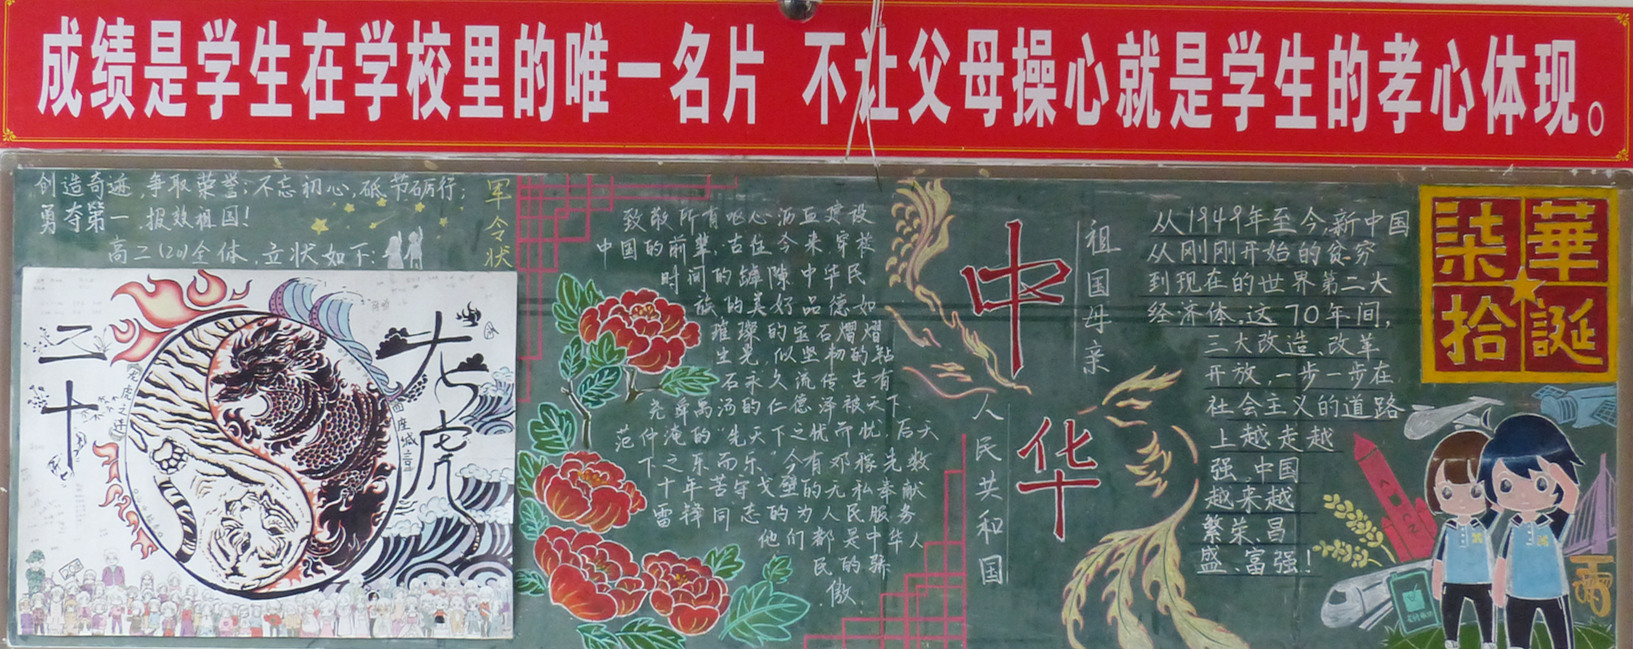 成绩是学生在学校里的唯一名片 不让父母操心就是学生的孝心体现。
创造奇迹,争取荣誉;不忘初心,砥节砺行;
勇夺第一,报效祖国!
高二(20)全体,立状如下:
军令状
二十
龙虎
致敬所有呕心沥血建设
中国的前辈,古往今来穿梭
时间的罅隙中华民
族的美好品德如
璀璨的宝石熠熠
生晃,似坚韧的钻
石永久流传,古有
尧舜禹汤的仁德泽被天下,
范仲淹的“先天下之忧而忧,后天
下之乐而乐”今有邓稼先数
十年苦守戈壁的无私奉献
雷锋同志的为人民服务
他们都是中华人
民的骄
傲.
中华
祖国母亲
人民共和国
从1949年至今,新中国
从刚刚开始的贫穷
到现在的世界第二大
经济体,这70年间,
三大改造、改革
开放,一步一步在
社会主义的道路
上越走越
强,中国
越来越
繁荣、昌
盛、富强!
柒華
拾誕